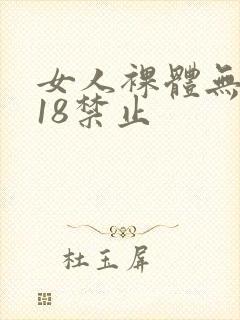 女人裸體無
18禁止
杜玉屏